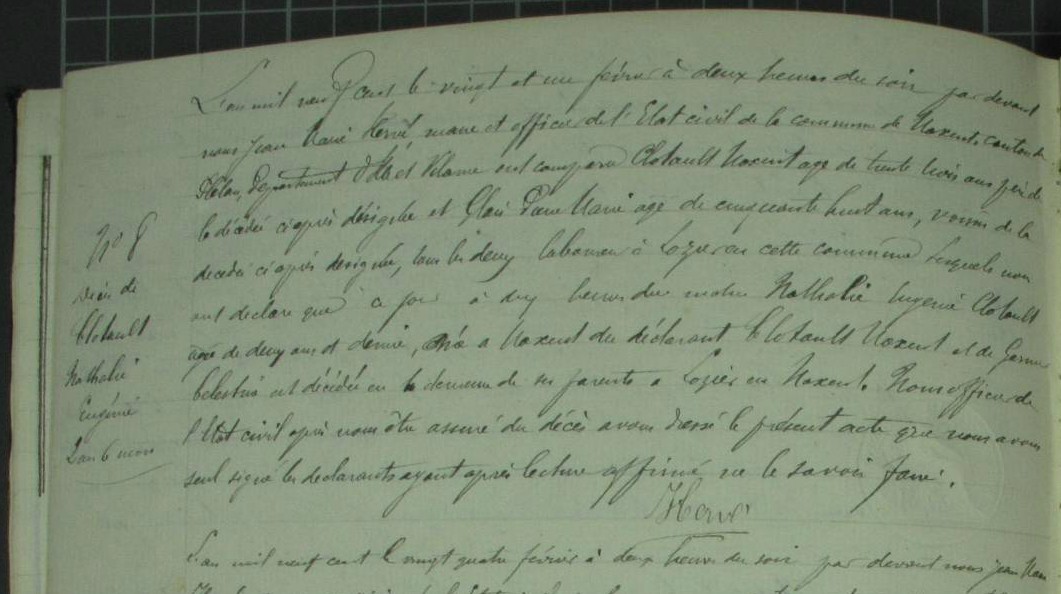 L'an mil neuf cent le vingt et un février à deux heures du soir par devant
nous Jean Marie Hervé, maire et officier de l'Etat civil de la commune de Maxent, canton de
Plélan, Département d'Ille et Vilaine ont comparu Clotault Maxent age de trente trois ans père de
la décédée ci après désignée et Glais Pierre Marie agé de cinquante huit ans, voisin de la
décédée ci après designée, tous les deux laboureurs à Lozier en cette commune lesquels nous
ont declaré que ce jour à dix heures du matin Nathalie Eugénie Clotault
agée de deux ans et demie, née à Maxent du déclarant Clotault Maxent et de
Célestine est décédée en la demeure de ses parents à Lozier en Maxent. Nous officier de
l'Etat civil après nous être assuré du décès avons dressé le présent acte que nous avons
seul signé les declarants ayant après lecture affirmé ne le savoir faire.
Hervé
No 8
décès de
Clotault
Nathalie
Eugénie
2 ans 6 mois
L'an mil neuf cent le vingt quatre février à deux heures du soir par devant nous Jean Marie